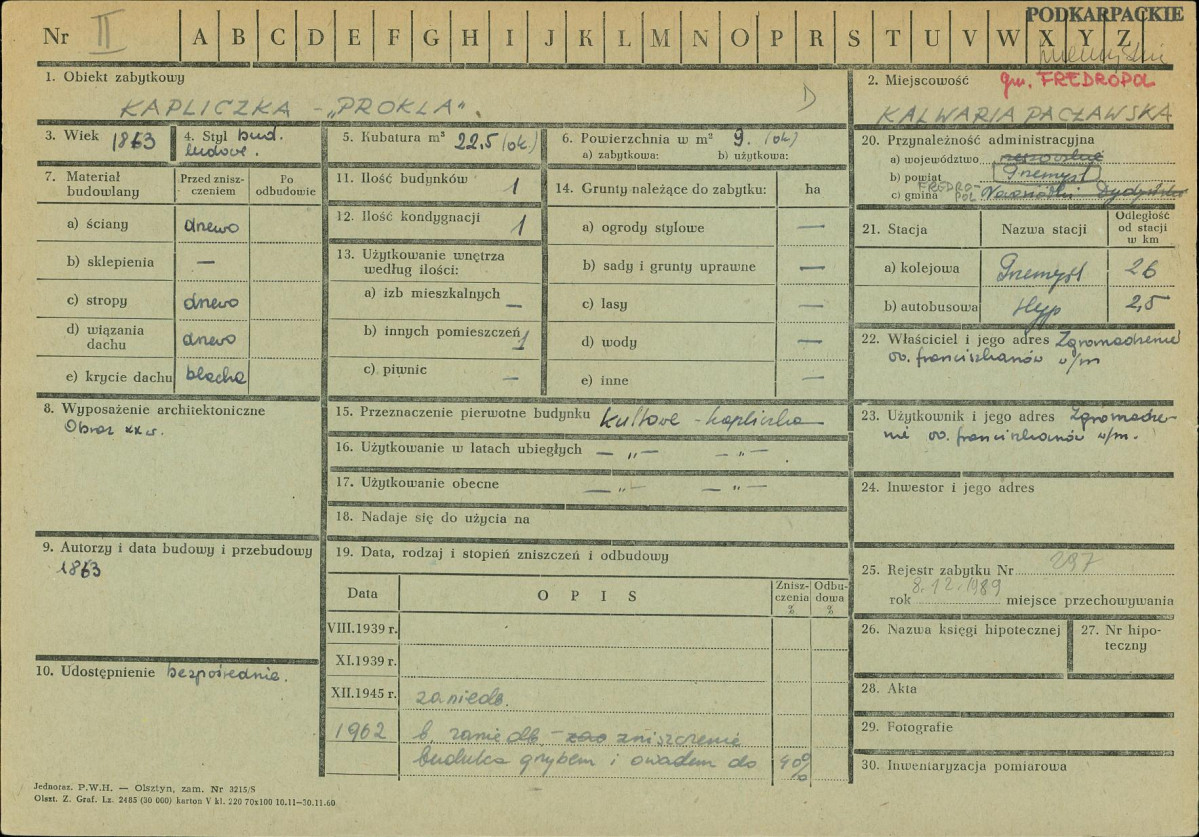 PODKARPACKIE
Nr II A B C D E F G H I J K L M N O P R S T U V W X Y Z
1. Obiekt zabytkowy
KAPLICZKA - „PROKLA".
D
2. Miejscowość gm. FREDROPOL
KALWARIA PACŁAWSKA
3. Wiek 1863
4. Styl bud. ludowe.
5. Kubatura m³ 22,5 (ok)
6. Powierzchnia w m² 9. (ok)
a) zabytkowa: b) użytkowa:
7. Materiał budowlany
Przed zniszczeniem
Po odbudowie
a) ściany drewo
b) sklepienia —
c) stropy drewo
d) wiązania dachu drewo
e) krycie dachu blacha
8. Wyposażenie architektoniczne
Obraz XX w.
9. Autorzy i data budowy i przebudowy
1863
10. Udostępnienie bezpośrednie.
11. Ilość budynków 1
12. Ilość kondygnacji 1
13. Użytkowanie wnętrza według ilości:
a) izb mieszkalnych —
b) innych pomieszczeń 1
c) piwnic —
14. Grunty należące do zabytku: ha
a) ogrody stylowe —
b) sady i grunty uprawne —
c) lasy —
d) wody —
e) inne —
15. Przeznaczenie pierwotne budynku kultowe - kapliczka
16. Użytkowanie w latach ubiegłych — „ — — „ — .
17. Użytkowanie obecne — „ — — „ —
18. Nadaje się do użycia na
19. Data, rodzaj i stopień zniszczeń i odbudowy
Data OPIS Zniszczenia % Odbudowa %
VIII.1939 r.
XI.1939 r.
XII.1945 r. zaniedb.
1962 b. zaniedb. - zniszczenie
budulca grzybem i owadem do 40%
20. Przynależność administracyjna
a) województwo rzeszowskie
b) powiat Przemyśl
c) gmina FREDROPOL
21. Stacja Nazwa stacji Odległość od stacji w km
a) kolejowa Przemyśl 26
b) autobusowa Hyp 2,5
22. Właściciel i jego adres Zgromadzenie
oo. franciszkanów w/m
23. Użytkownik i jego adres Zgromadze-
nie oo. franciszkanów w/m.
24. Inwestor i jego adres
25. Rejestr zabytku Nr 297
rok 8.12.1989 miejsce przechowywania
26. Nazwa księgi hipotecznej
27. Nr hipoteczny
28. Akta
29. Fotografie
30. Inwentaryzacja pomiarowa
Jednoraz. P.W.H. — Olsztyn, zam. Nr 3215/S
Olszt. Z. Graf. Lz. 2485 (30 000) karton V kl. 220 70x100 10.11—30.11.60